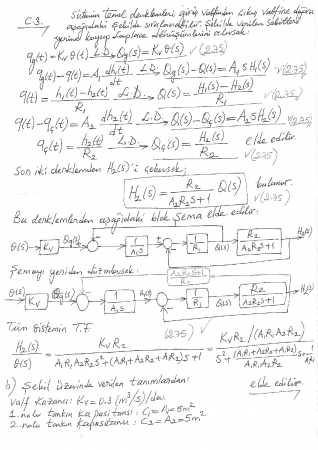 C3. Sistemin temel denklemleri giriş valfinden çıkış valfine doğru
aşağıdaki şekilde sıralanabilir. Şekilde verilen sabitleri
yerine koyup Laplace dönüşümlerini alırsak:
qg(t) = Kv θ(t) L.D. Qg(s) = Kv θ(s) √(2.75)
qg(t) - q(t) = A1 dh1(t)/dt L.D. Qg(s) - Q(s) = A1 s H1(s) √(2.75)
q(t) = (h1(t) - h2(t))/R1 L.D. Q(s) = (H1(s) - H2(s))/R1 √(2.75)
q(t) - qç(t) = A2 dh2(t)/dt L.D. Q(s) - Qç(s) = A2 s H2(s) √(2.75)
qç(t) = h2(t)/R2 L.D. Qç(s) = H2(s)/R2 elde edilir. √(2.75)
Son iki denklemden H2(s)'i çekersek;
H2(s) = R2/(A2R2s+1) Q(s) bulunur. √(2.75)
Bu denklemlerden aşağıdaki blok şema elde edilir:
θ(s) Kv Qg(s) 1/(A1s) 1/R1 Q(s) R2/(A2R2s+1) H2(s)
Şemayı yeniden düzenlersek:
(A2R2s+1)/R2
θ(s) Kv Qg(s) 1/(A1s) 1/R1 Q(s) R2/(A2R2s+1) H2(s)
Tüm Sistemin T.F. (2.75) √
H2(s)/θ(s) = KvR2/(A1R1A2R2s²+(A1R1+A2R2+A1R2)s+1) = KvR2/(A1R1A2R2)
elde edilir.
b) Şekil üzerinde verilen tanımlardan:
Valf Kazancı: Kv = 0.3 (m³/s)/
1. nolu tankın kapasitansı: C1 = A1 = 5m²
2. nolu tankın kapasitansı: C2 = A2 = 5m²